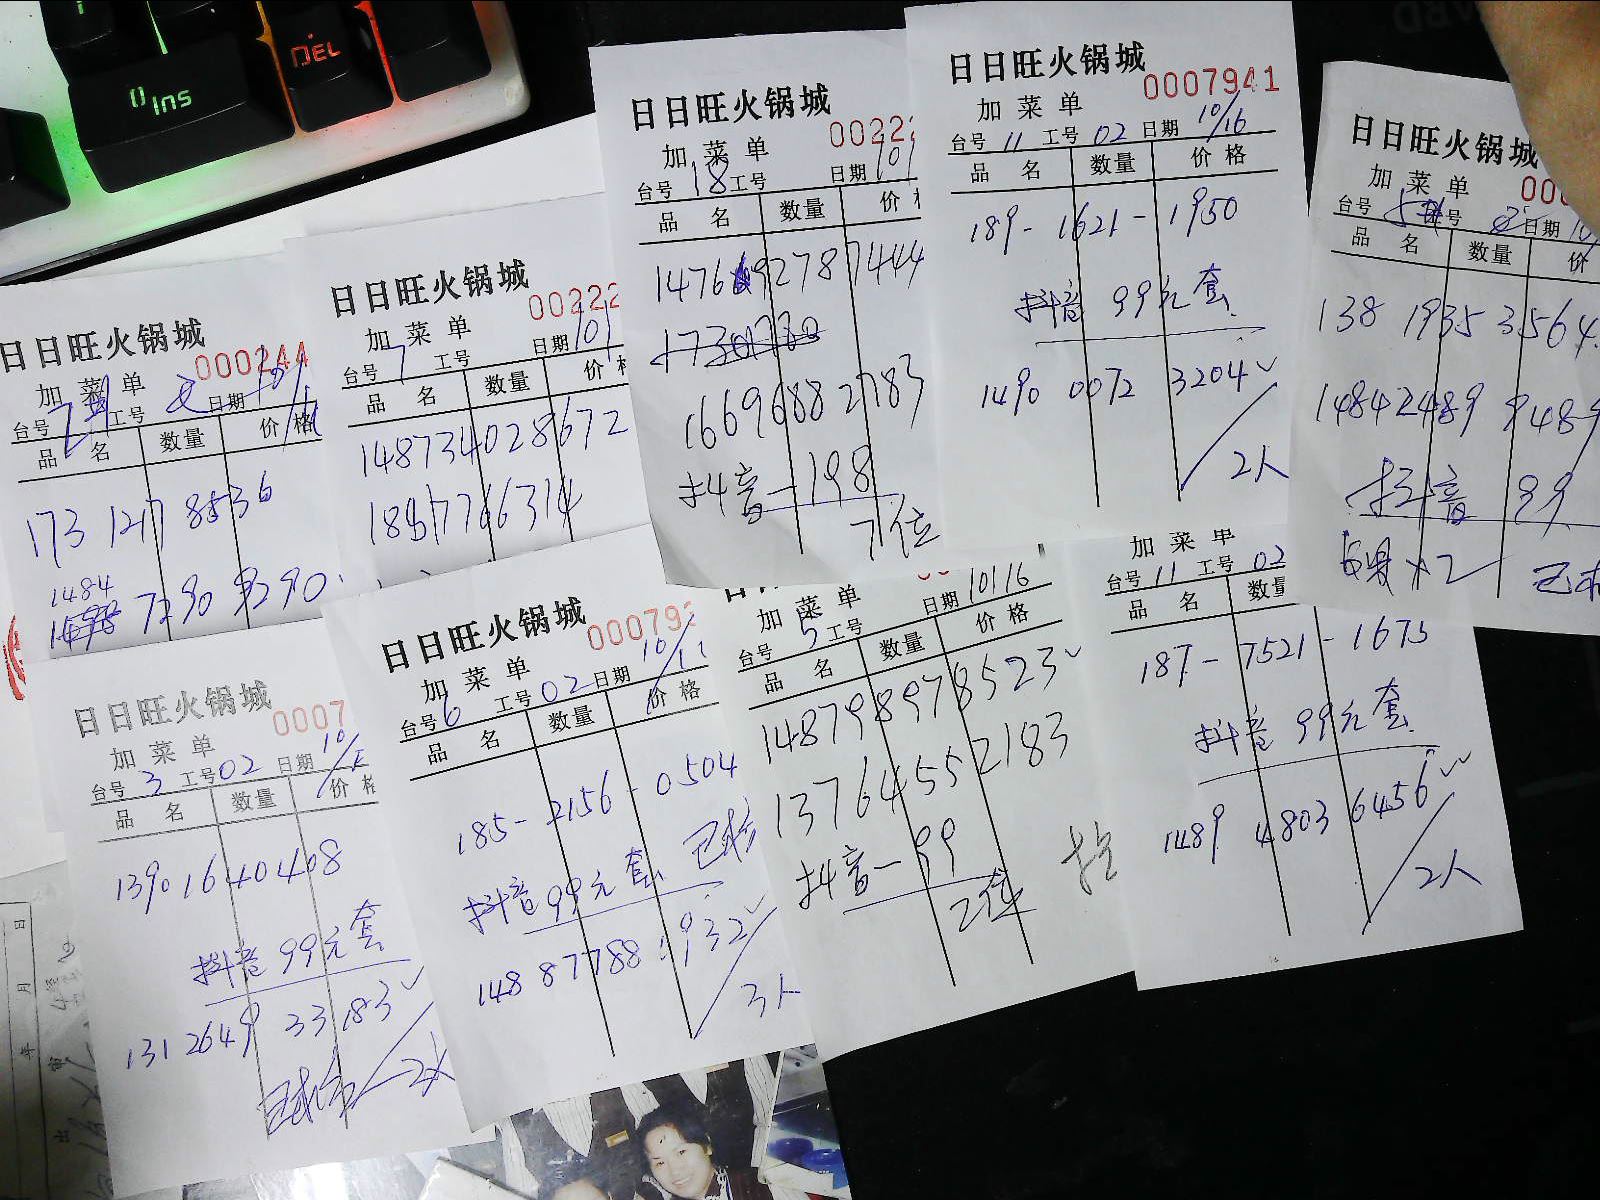 Ins
DEL
日日旺火锅城
0007941
加菜单
台号 11 工号 02 日期 10/16
品名 数量 价格
189-1621-1950
抖音 99元套
1490 0072 3204
2人
日日旺火锅城
0022
加菜单
台号 18 工号 日期 10
品名 数量 价
1476 9278 7444
1669688 2783
抖音-198
7位
日日旺火锅城
00
加菜单
号 日期 10
品名 数量 价
138 1935 3564
1484 2489 948
抖音 99
日日旺火锅城
00222
加菜单
台号 7 工号 日期 10
品名 数量 价格
148734028672
日日旺火锅城
000244
加菜单
台号 工号 日期
品名 数量 价格
173 1217 8536
1484
7290 9290
日日旺火锅城
0007
加菜单
台号 3 工号 02 日期 10
品名 数量 价格
139 0164 0408
抖音 99元套
131 2649 3383
2人
日日旺火锅城
00079
加菜单
台号 6 工号 02 日期 10/
品名 数量 价格
185-2156-0504
抖音 99元套 已核
148 87788 1932
3人
加菜单
台号 5 工号 日期 10/16
品名 数量 价格
148798978523
137 6455 2183
抖音-99
2位
加菜单
台号 11 工号 02
品名 数量
187-7521-1675
抖音 99元套
1489 4803 6456
2人